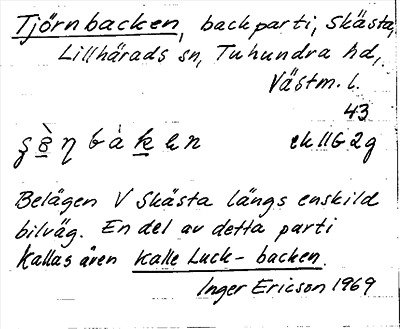 Tjörnbacken, backparti, Skästa,
Lillhärads sn, Tuhundra hd,
Västm. l.
43
ek 11G 2g
Belägen V Skästa längs enskild
bilväg. En del av detta parti
kallas även Kalle Luck-backen.
Inger Ericson 1969